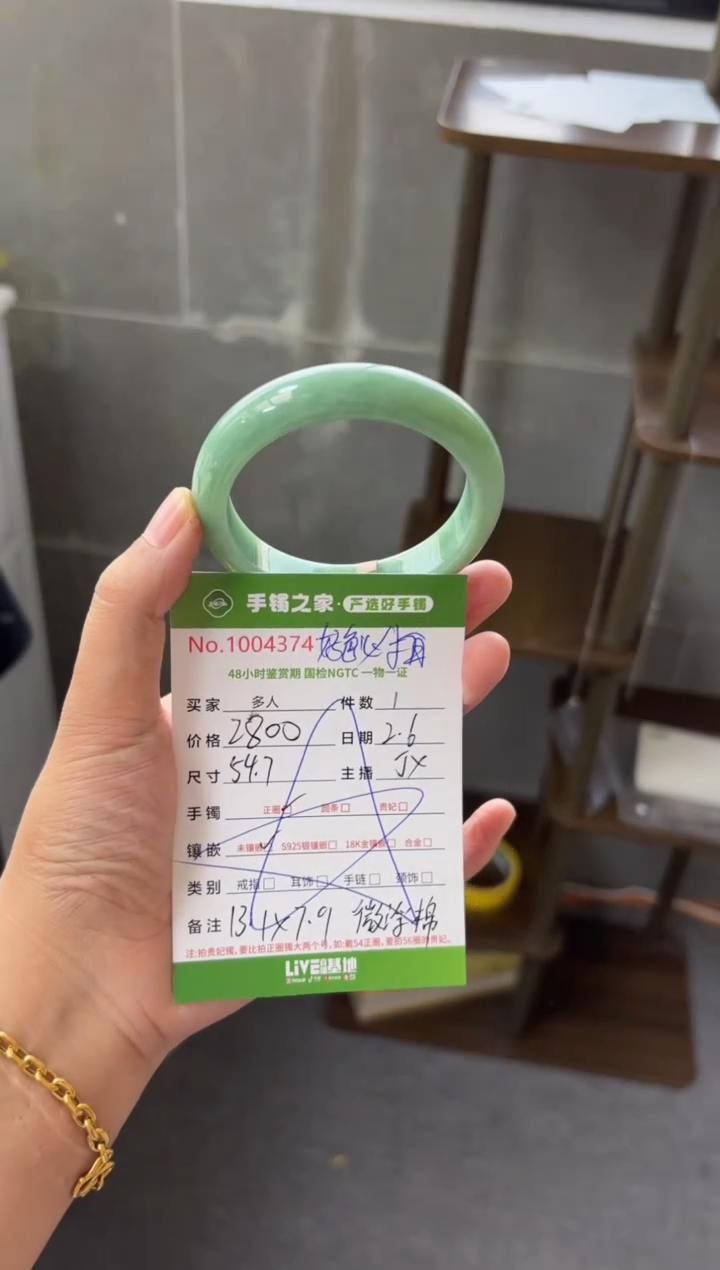 手镯之家·严选好手镯
No.1004374
48小时鉴赏期 国检NGTC 一物一证
买家 多人 件数 1
价格 2800 日期 2.6
尺寸 54.7 主播 JX
手镯 正圈☑ 圆条□ 贵妃□
镶嵌 未镶嵌☑ S925银镶嵌□ 18K金镶嵌□ 合金□
类别 戒指□ 耳饰□ 手链□ 颈饰□
备注 13.1x7.9 微涂棉
注:拍贵妃镯,要比拍正圈镯大两个号,如:戴54正圈,要拍56圈的贵妃。
LiVE 基地